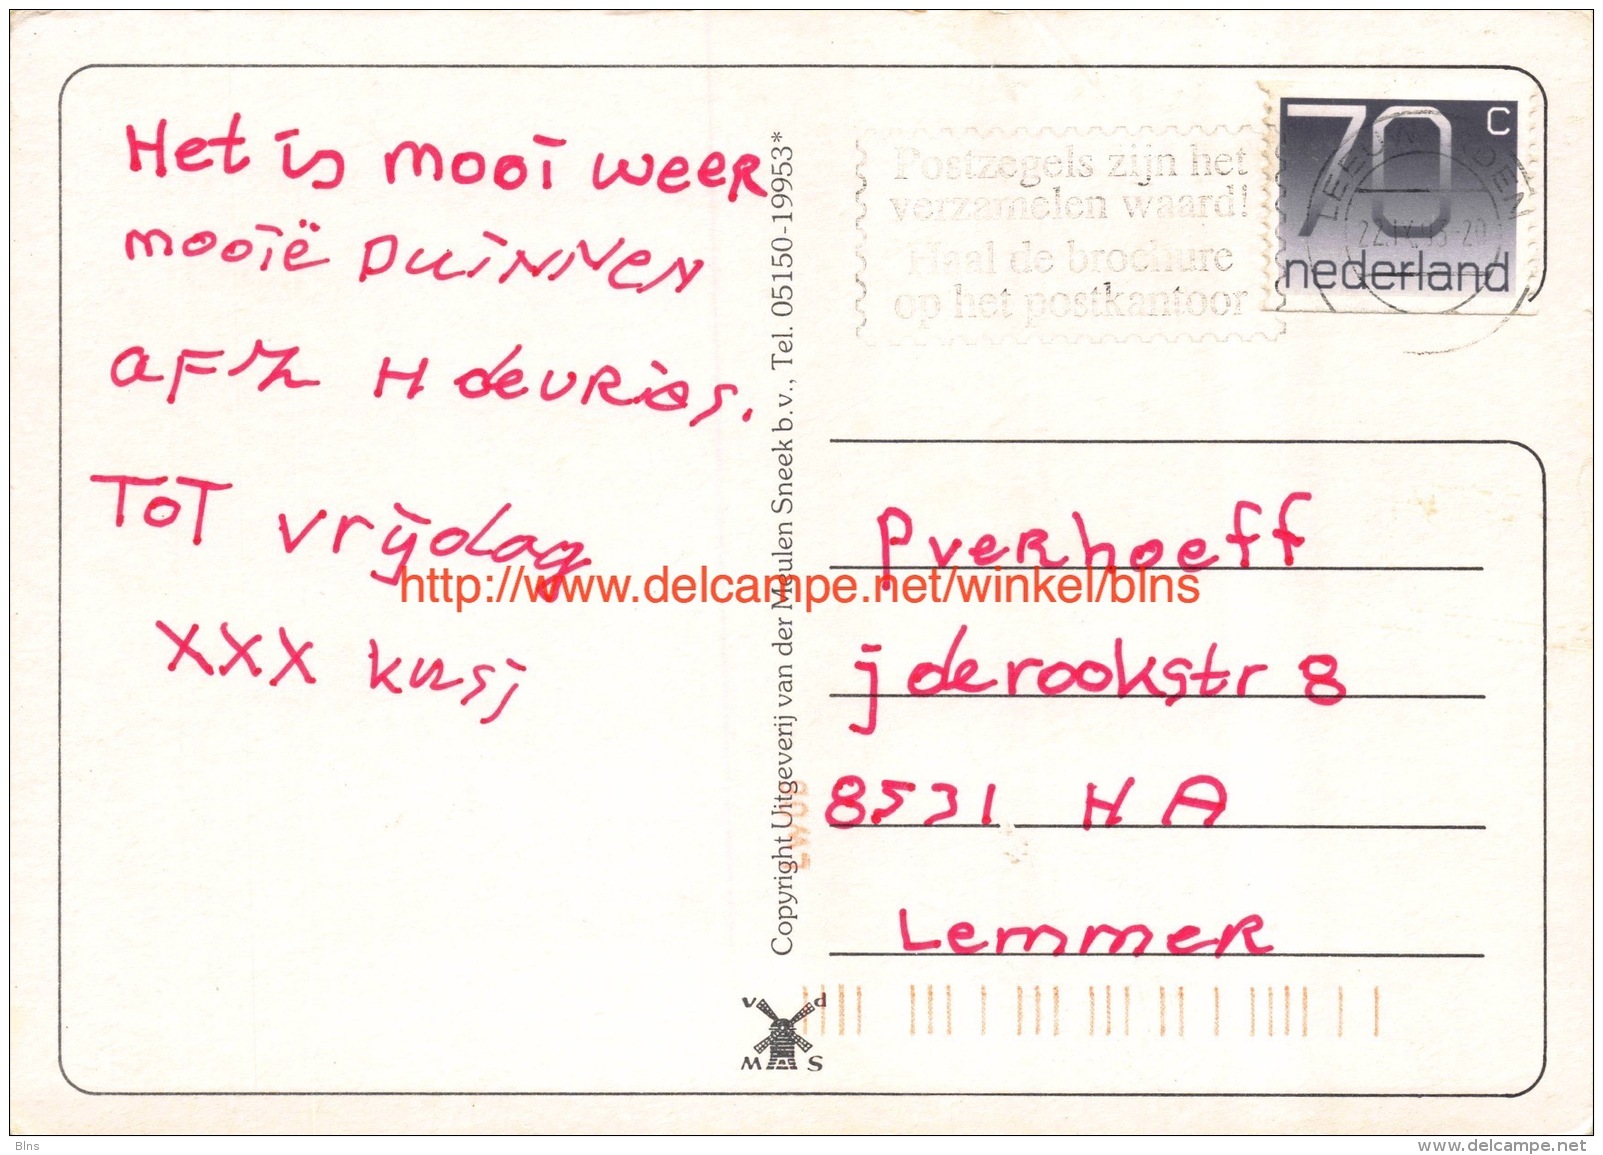 Het is mooi weer
mooië Duinnen
afz H de vries.
Tot vrijdag
XXX kusj
Copyright Uitgeverij van der Meulen Sneek b.v., Tel. 05150-19953*
Postzegels zijn het
verzamelen waard!
Haal de brochure
op het postkantoor
70 c
nederland
P verhoeff
j de rookstr 8
8531 HA
Lemmer
v d
M S
http://www.delcampe.net/winkel/blns
Blns
www.delcampe.net